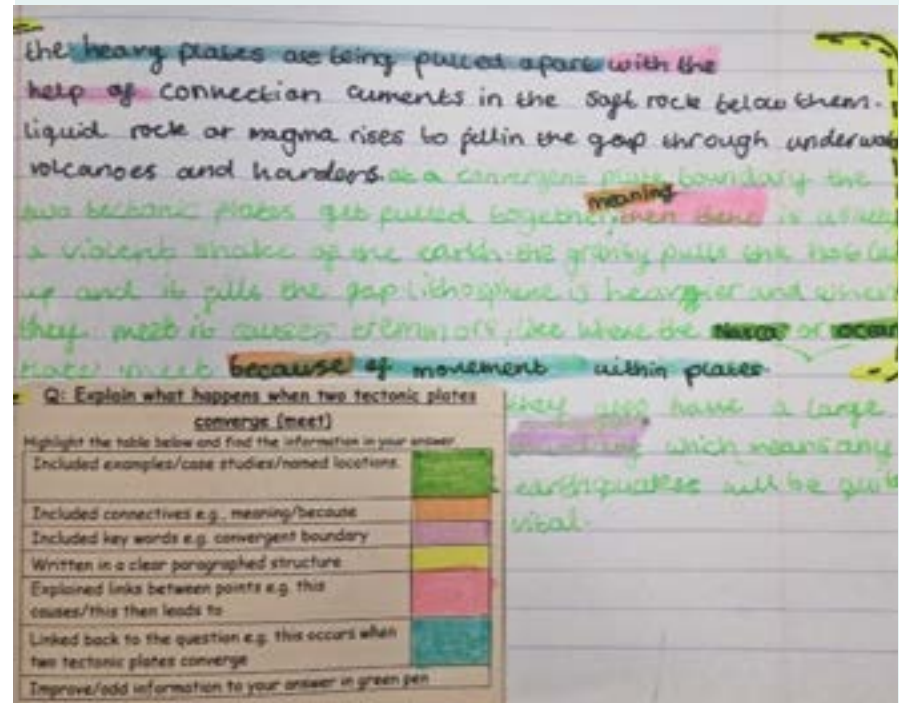 the heavy plates are being pulled apart with the
help of connection currents in the soft rock below them.
liquid rock or magma rises to fill in the gap through
volcanoes and hardens. at a convergent plate boundary the
meaning
two tectonic plates get pulled together, then there is
a violent shake of the earth. the gravity pulls
up and it fills the gap lithosphere is heavier and
they meet it causes, like where the Nazca or ocean
meet because of movement within plates.
they also have a large
which means any
earthquakes will be
vital.
Q: Explain what happens when two tectonic plates
converge (meet)
Highlight the table below and find the information in your answer
Included examples/case studies/named locations
Included connectives e.g., meaning/because
Included key words e.g. convergent boundary
Written in a clear paragraphed structure
Explained links between points e.g. this
causes/this then leads to
Linked back to the question e.g. this occurs when
two tectonic plates converge
Improve/add information to your answer in green pen